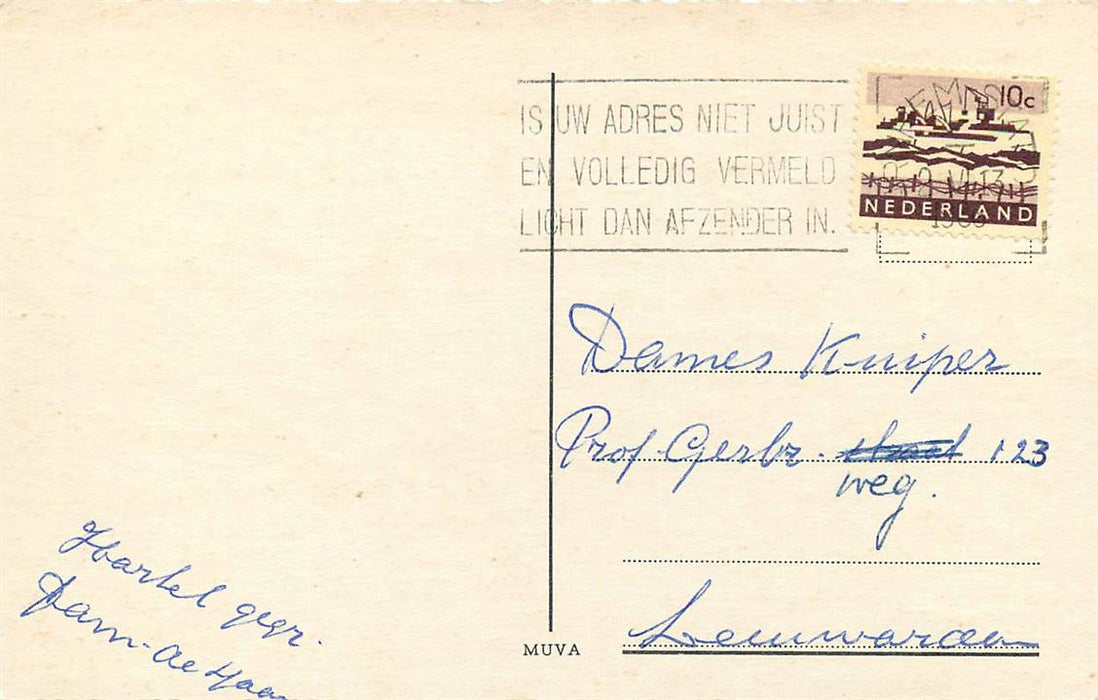 IS UW ADRES NIET JUIST
EN VOLLEDIG VERMELD
LICHT DAN AFZENDER IN.
10c
NEDERLAND
Dames Kuiper
Prof Gerbr. 123
weg.
Leeuwarden
Hartel gegr.
Dam-de Haan
MUVA